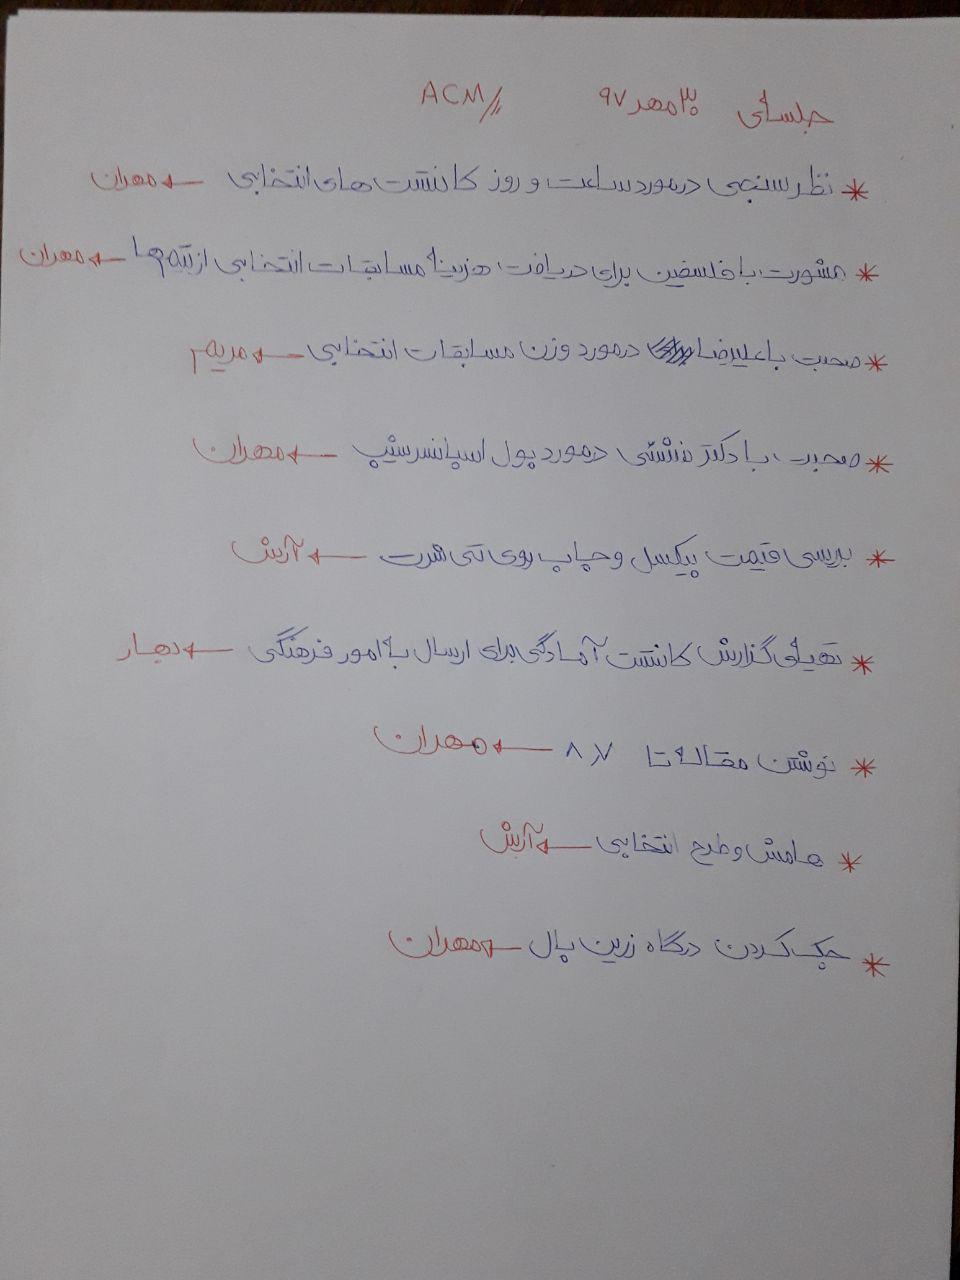 جلسه‌ی ۳۰ مهر ۹۷ ACM
* نظرسنجی درمورد ساعت و روز کانتست های انتخابی ← مهران
* مشورت با فلسفین برای دریافت هزینه مسابقات انتخابی از تیم ها ← مهران
* صحبت با علیرضا درمورد وزن مسابقات انتخابی ← مریم
* صحبت با دکتر درمورد پول اسپانسرشیپ ← مهران
* بررسی قیمت پیکسل و چاپ روی تی شرت ← آرش
* تهیه‌ی گزارش کانتست آمادگی برای ارسال به امور فرهنگی ← بهار
* نوشتن مقاله تا ۸/۷ ← مهران
* هامش و طرح انتخابی ← آرش
* چک کردن درگاه زرین پال ← مهران